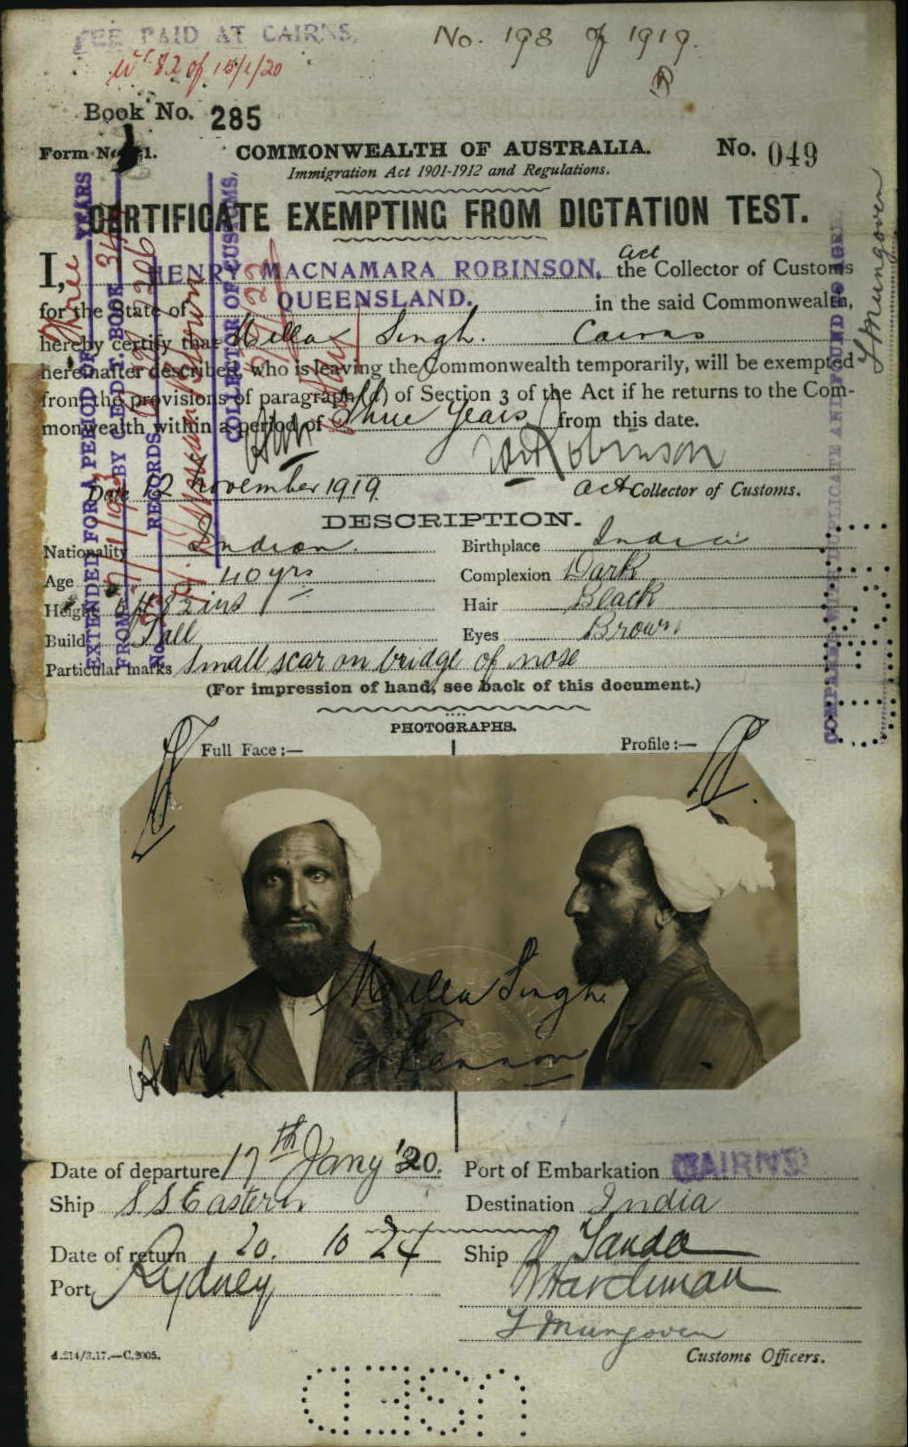 FEE PAID AT CAIRNS.
No. 198 of 1919.
Book No. 285
Form No. 1.
COMMONWEALTH OF AUSTRALIA.
No. 049
Immigration Act 1901-1912 and Regulations.
CERTIFICATE EXEMPTING FROM DICTATION TEST.
I, HENRY MACNAMARA ROBINSON, act the Collector of Customs
for the State of QUEENSLAND. in the said Commonwealth,
hereby certify that Mella Singh. Cairns
hereinafter described, who is leaving the Commonwealth temporarily, will be exempted
from the provisions of paragraph (a) of Section 3 of the Act if he returns to the Com-
monwealth within a period of Three Years from this date.
Date 12 November 1919
act Collector of Customs.
EXTENDED FOR A PERIOD OF Three YEARS
FROM BY C.E.D.T. BOOK
RECORDS
COLLECTOR OF CUSTOMS.
F Mungoven
COMPARED WITH DUPLICATE AND FOUND
DESCRIPTION.
Nationality Indian.
Birthplace India
Age 40 yrs
Complexion Dark
Height
Hair Black
Build Tall
Eyes Brown
Particular marks Small scar on bridge of nose
(For impression of hand, see back of this document.)
PHOTOGRAPHS.
Full Face :—
Profile :—
Mella Singh
Date of departure 17th Jany '20.
Port of Embarkation CAIRNS
Ship S S Eastern
Destination India
Date of return 20. 10 24
Ship Tanda
Port Sydney
R Hardiman
F Mungoven
Customs Officers.
d.214/3.17.—C.2005.